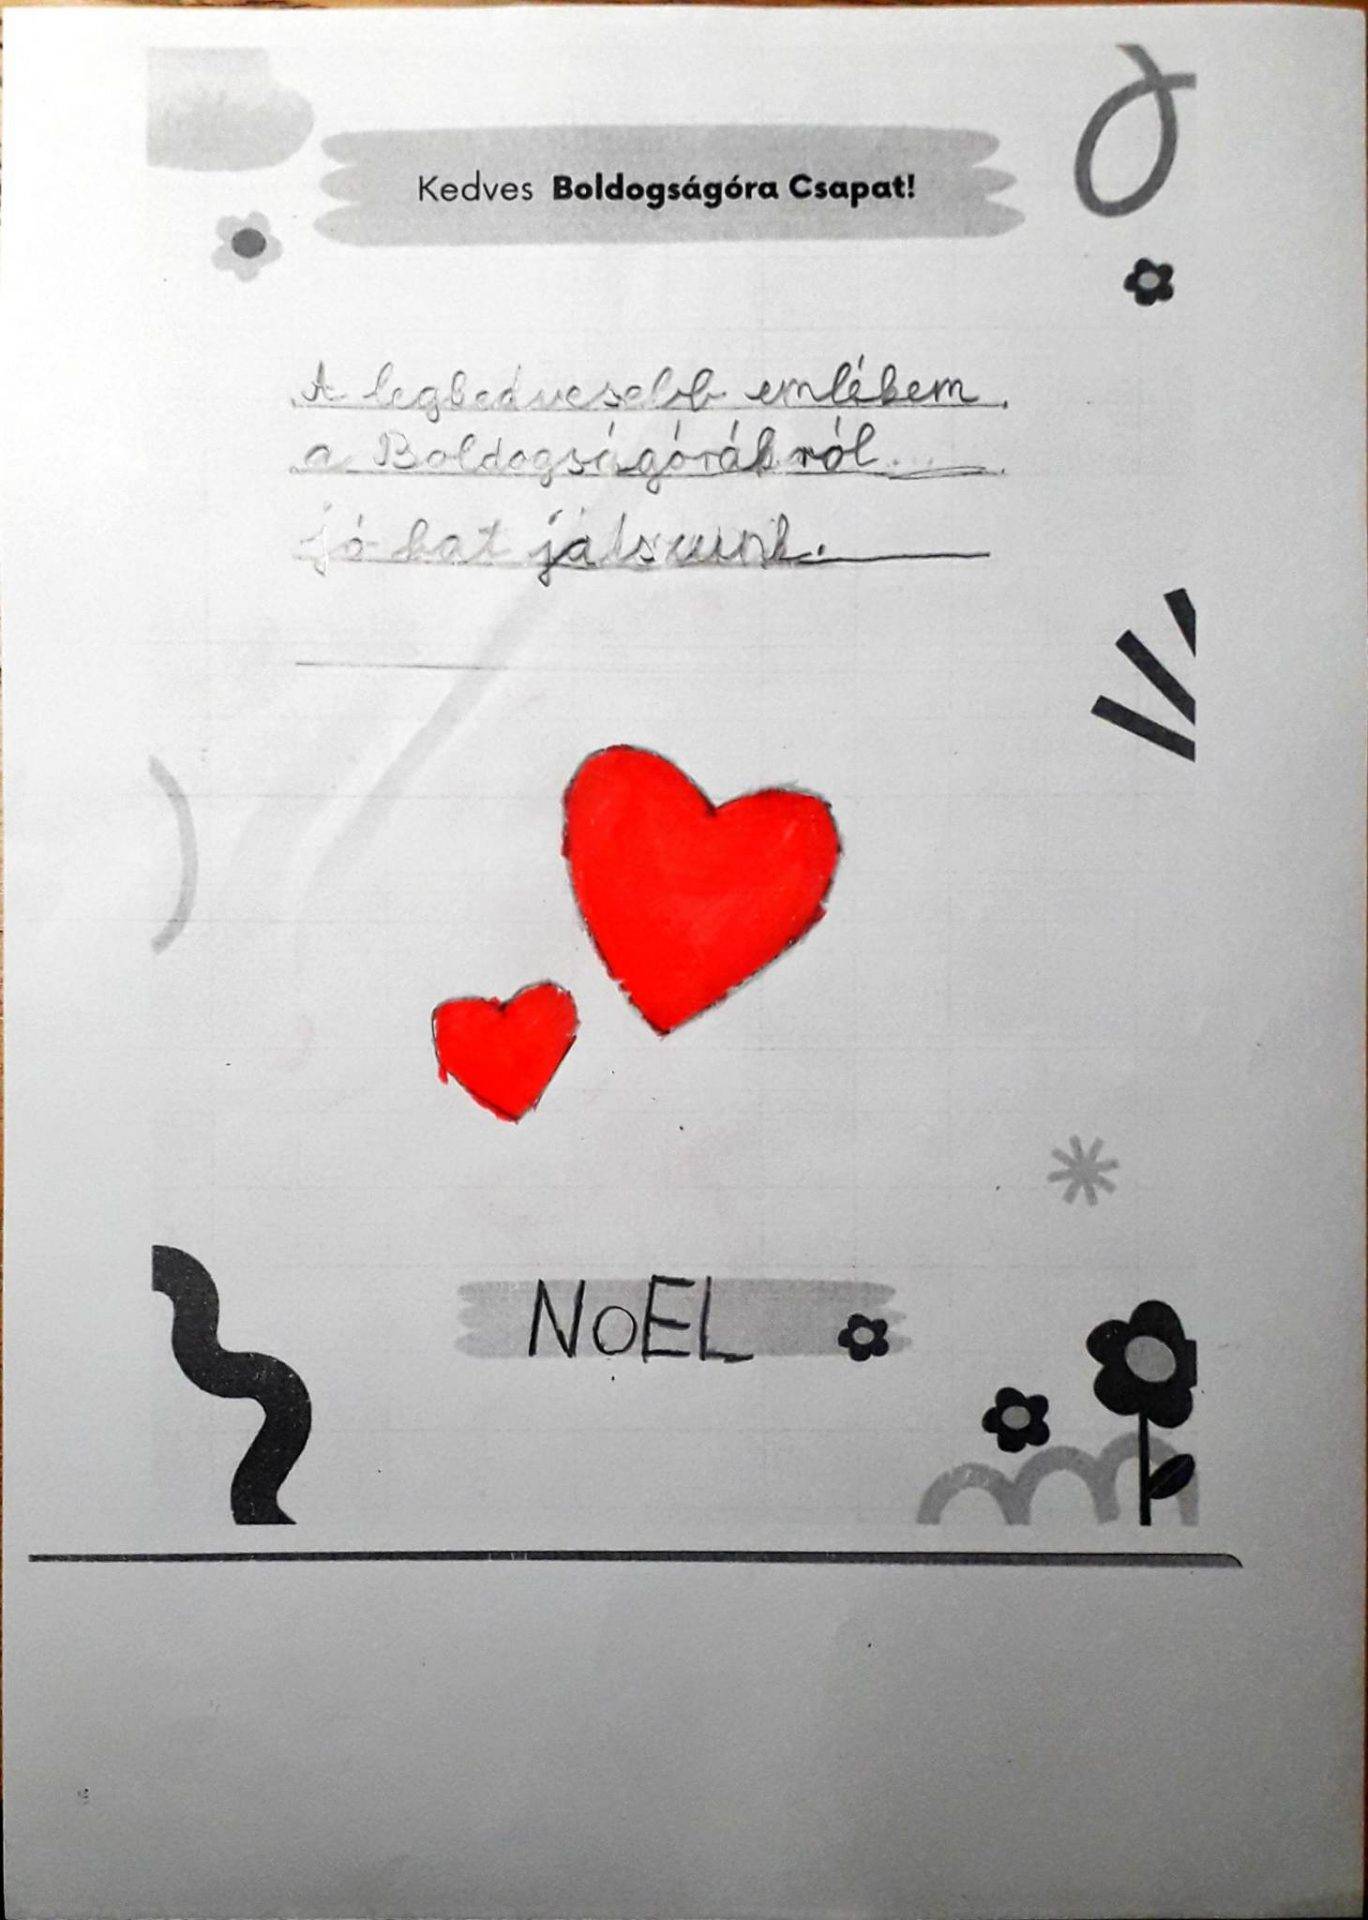 Kedves Boldogságóra Csapat!
A legkedvesebb emlékem
a Boldogságórákról
jó kat játszunk.
NoEL